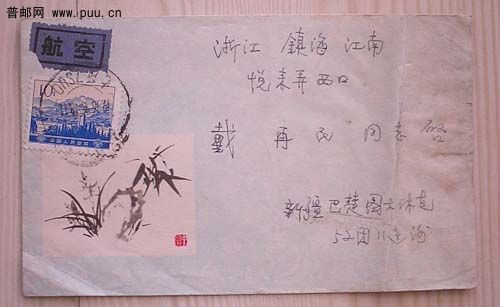 普邮网 www.ipuu.cn
航空
浙江 镇海 江南
悦来弄西口
戴 再民 同志 启
中国人民邮政
新疆巴楚图木休克
52团